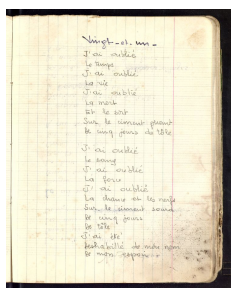 Vingt-et-un-
J'ai oublié
Le temps
J'ai oublié
La vie
J'ai oublié
La mort
Et le sort
Sur le ciment puant
De cinq jours de tôle
J'ai oublié
Le sang
J'ai oublié
La force
J'ai oublié
La chance et les nerfs
Sur le ciment sourd
De cinq jours
De tôle
J'ai été
déshabillé de mon nom
De mon espoir